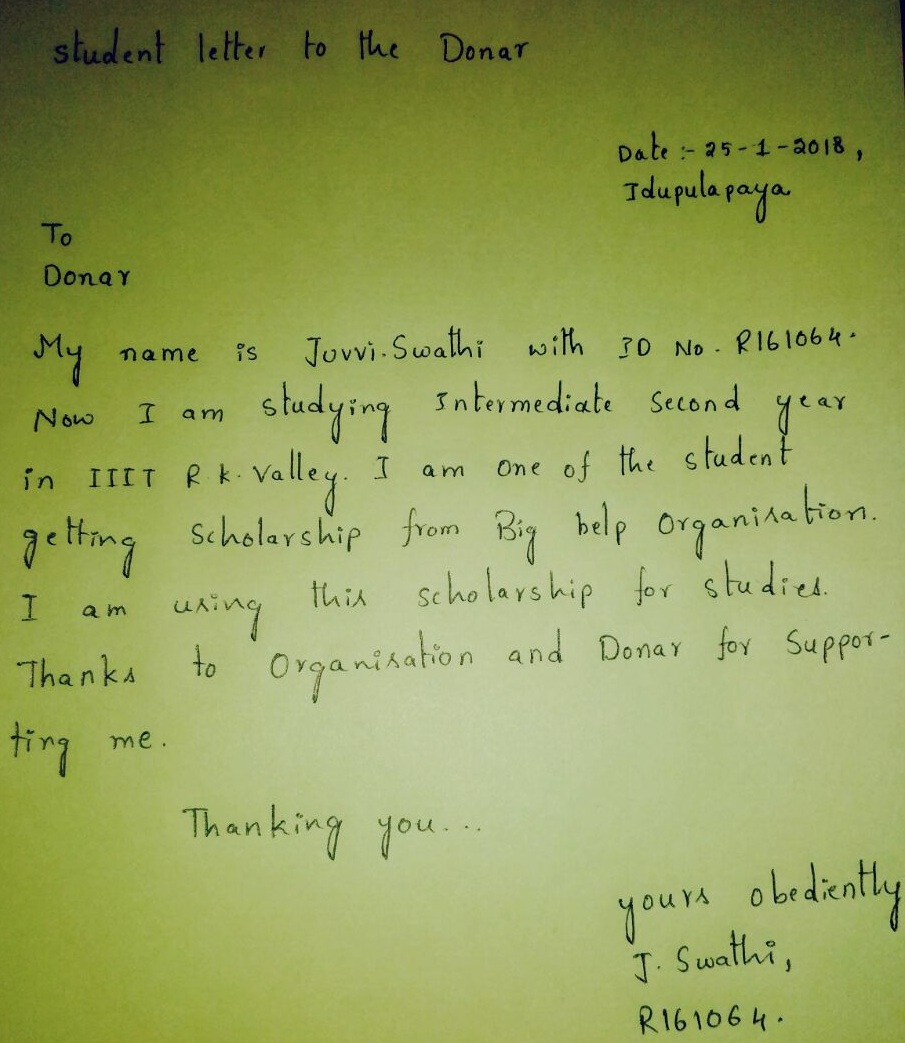 student letter to the Donar
Date :- 25-1-2018,
Idupulapaya
To
Donar
My name is Juvvi.Swathi with ID No. R161064.
Now I am studying Intermediate Second year
in IIIT R.k.Valley. I am one of the student
getting Scholarship from Big help Organisation.
I am using this scholarship for studies.
Thanks to Organisation and Donar for Suppor-
ting me.
Thanking you...
yours obediently
J. Swathi,
R161064.